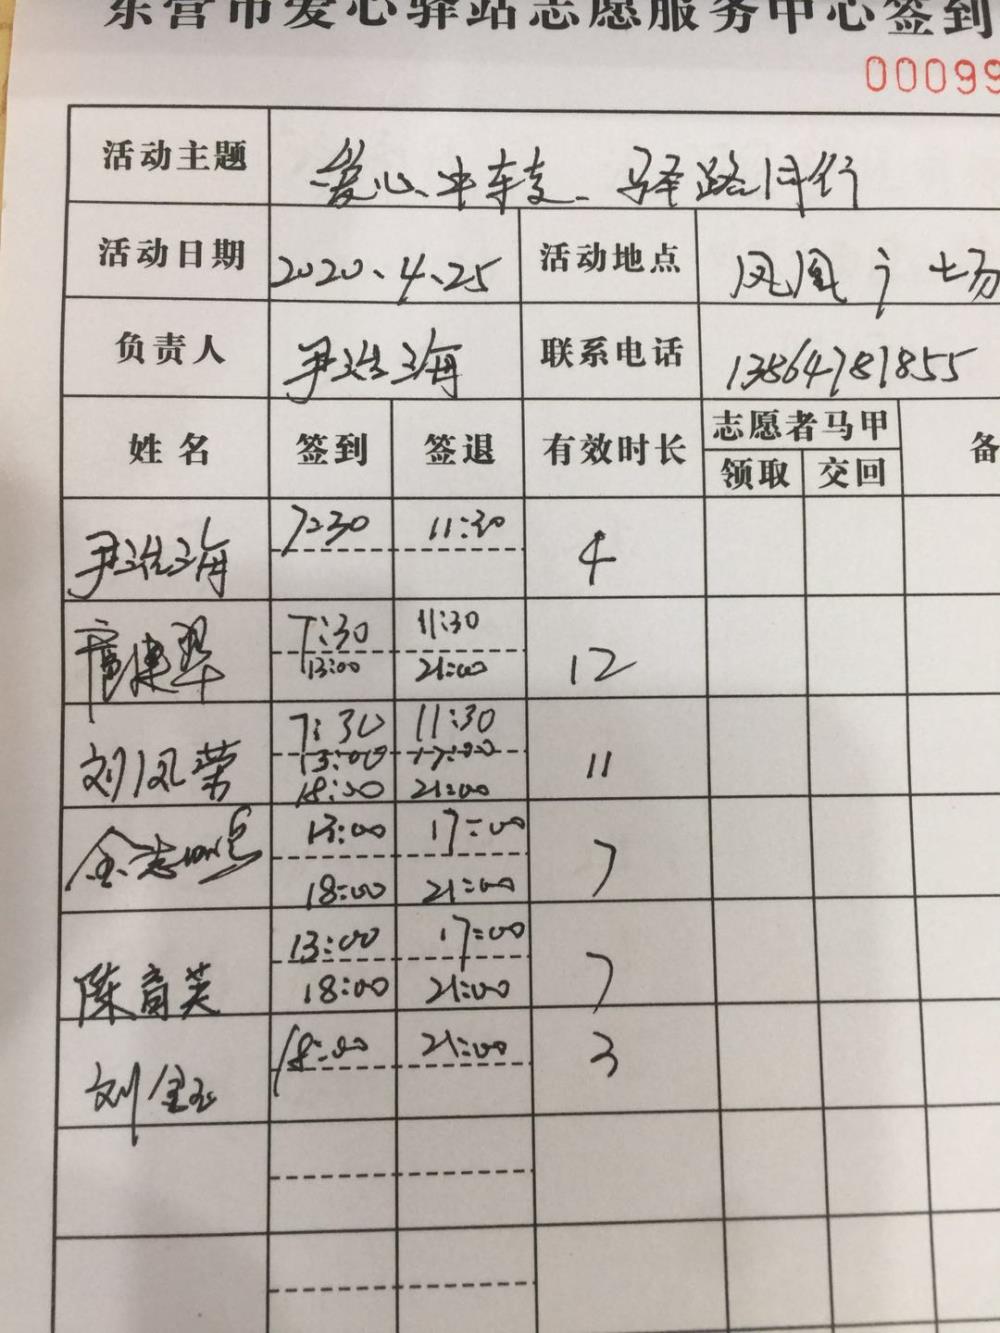 东营市爱心驿站志愿服务中心签到
00099
活动主题 爱心中转支、驿路同行
活动日期 2020.4.25 活动地点 凤凰广场
负责人 尹浩海 联系电话 13864781855
姓名 签到 签退 有效时长 志愿者马甲 备
领取 交回
尹浩海 7:30 11:30 4
7:30 11:30
建翠 13:00 21:00 12
7:30 11:30
刘凤荣 13:00 17:00 11
18:00 21:00
13:00 17:00
金志 18:00 21:00 7
13:00 17:00
陈育英 18:00 21:00 7
18:00 21:00 3
刘金玉